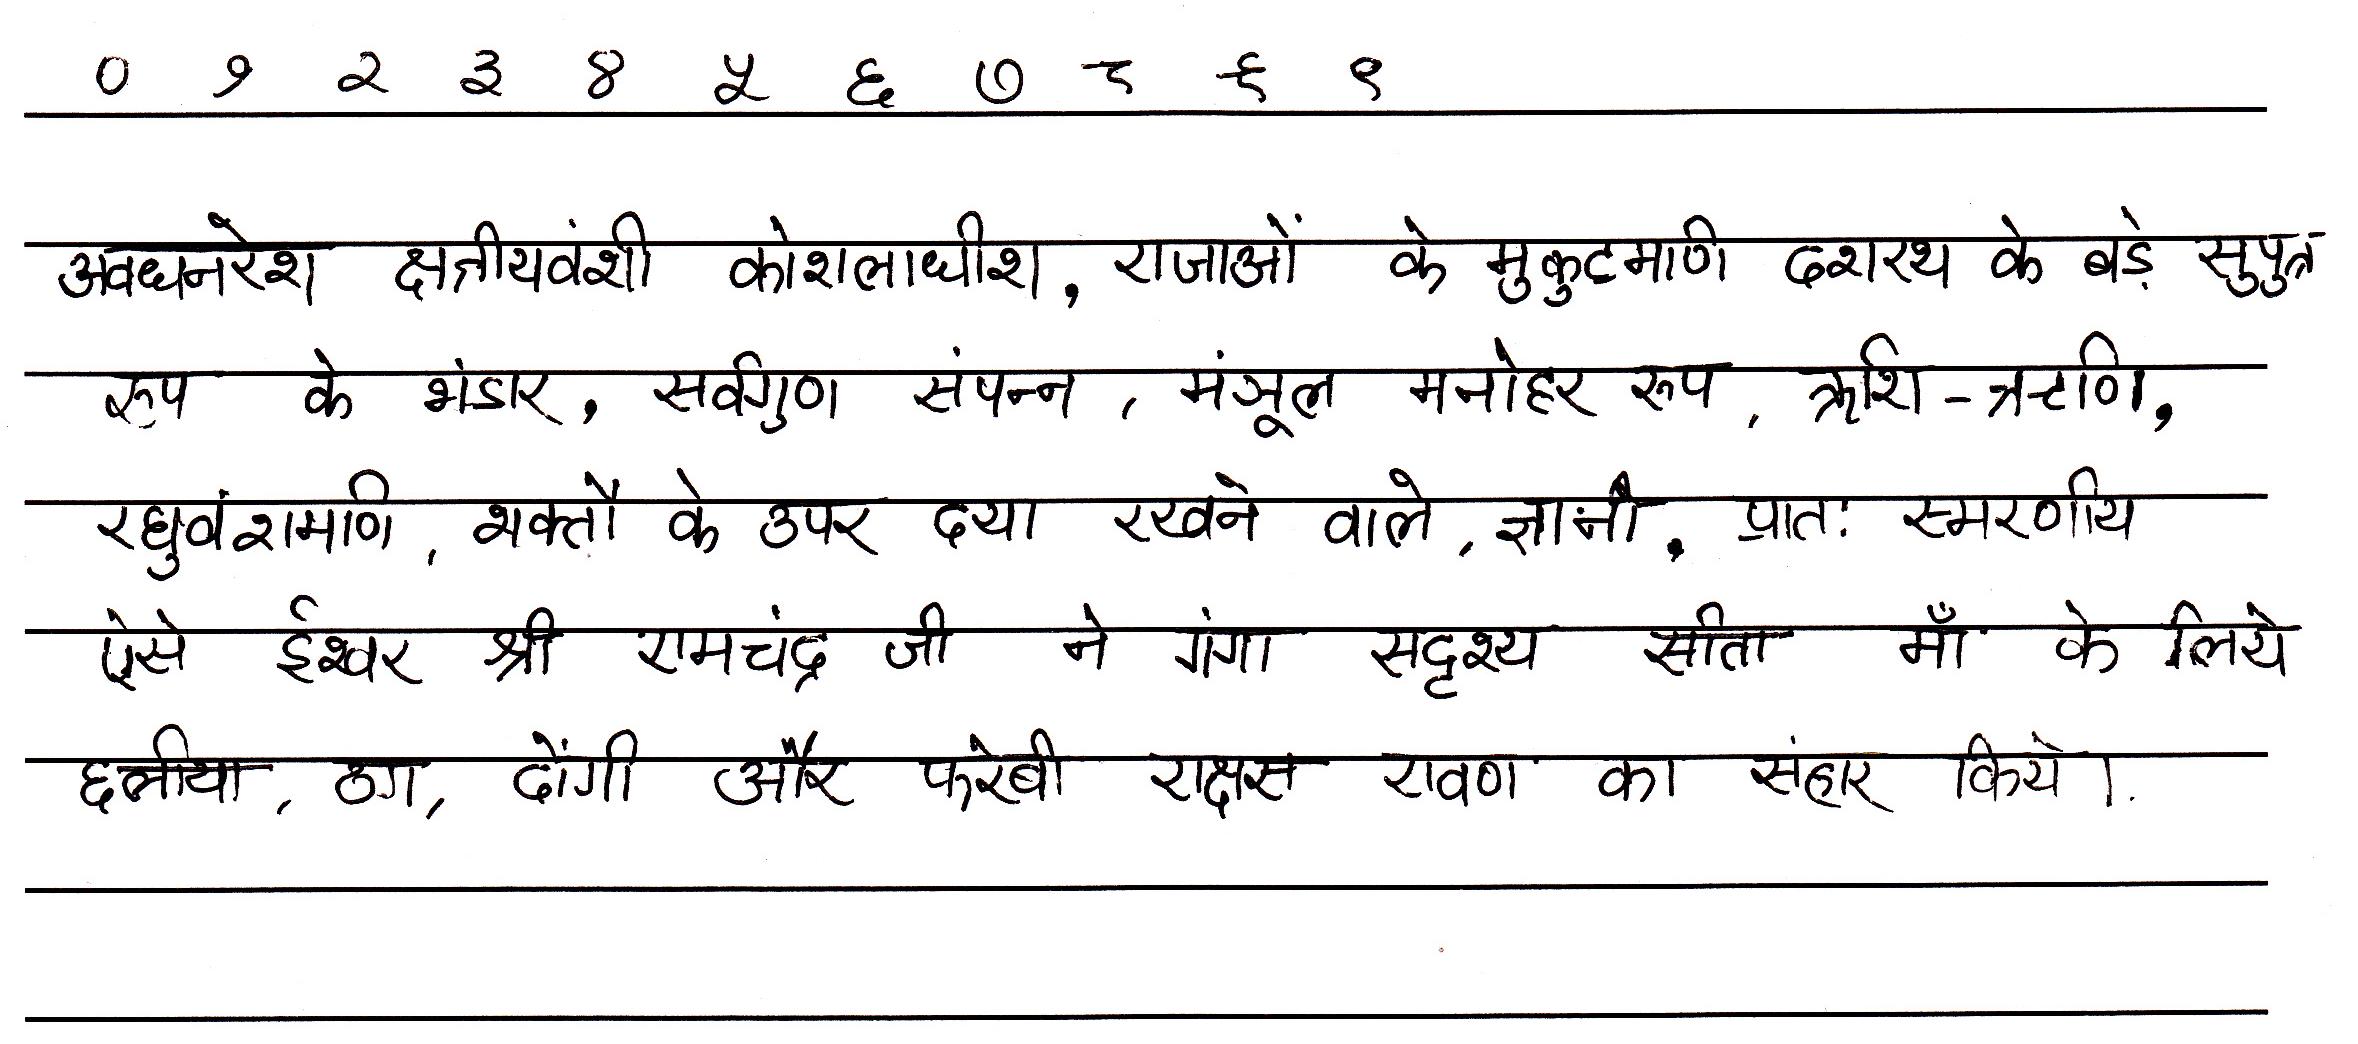 ० १ २ ३ ४ ५ ६ ७ ८ ९ ९
अवधनरेश क्षत्रीयवंशी कोशलाधीश, राजाओं के मुकुटमणि दशरथ के बड़े सुपुत्र
रुप के भंडार, सर्वगुण संपन्न, मंजूल मनोहर रुप,
रघुवंशमणि, भक्तौ के उपर दया रखने वाले, ज्ञानी, प्रातः स्मरणीय
ऐसे ईश्वर श्री रामचंद्र जी ने गंगा सदृश्य सीता माँ के लिये
छलीया, ठग, ढोंगी और फरेबी राक्षस रावण का संहार किये।